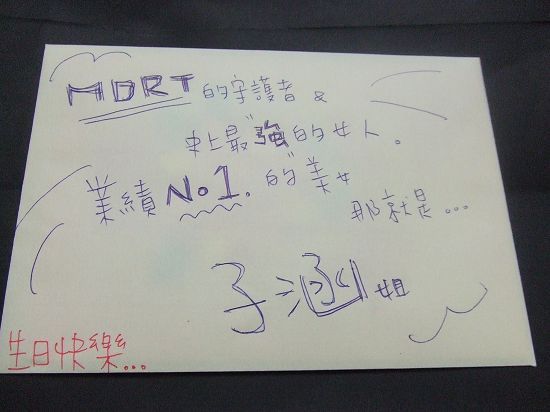 MDRT的守護者 &
史上最"強"的女人。
業績 No1. 的"美女
那就是...
子涵姐
生日快樂...